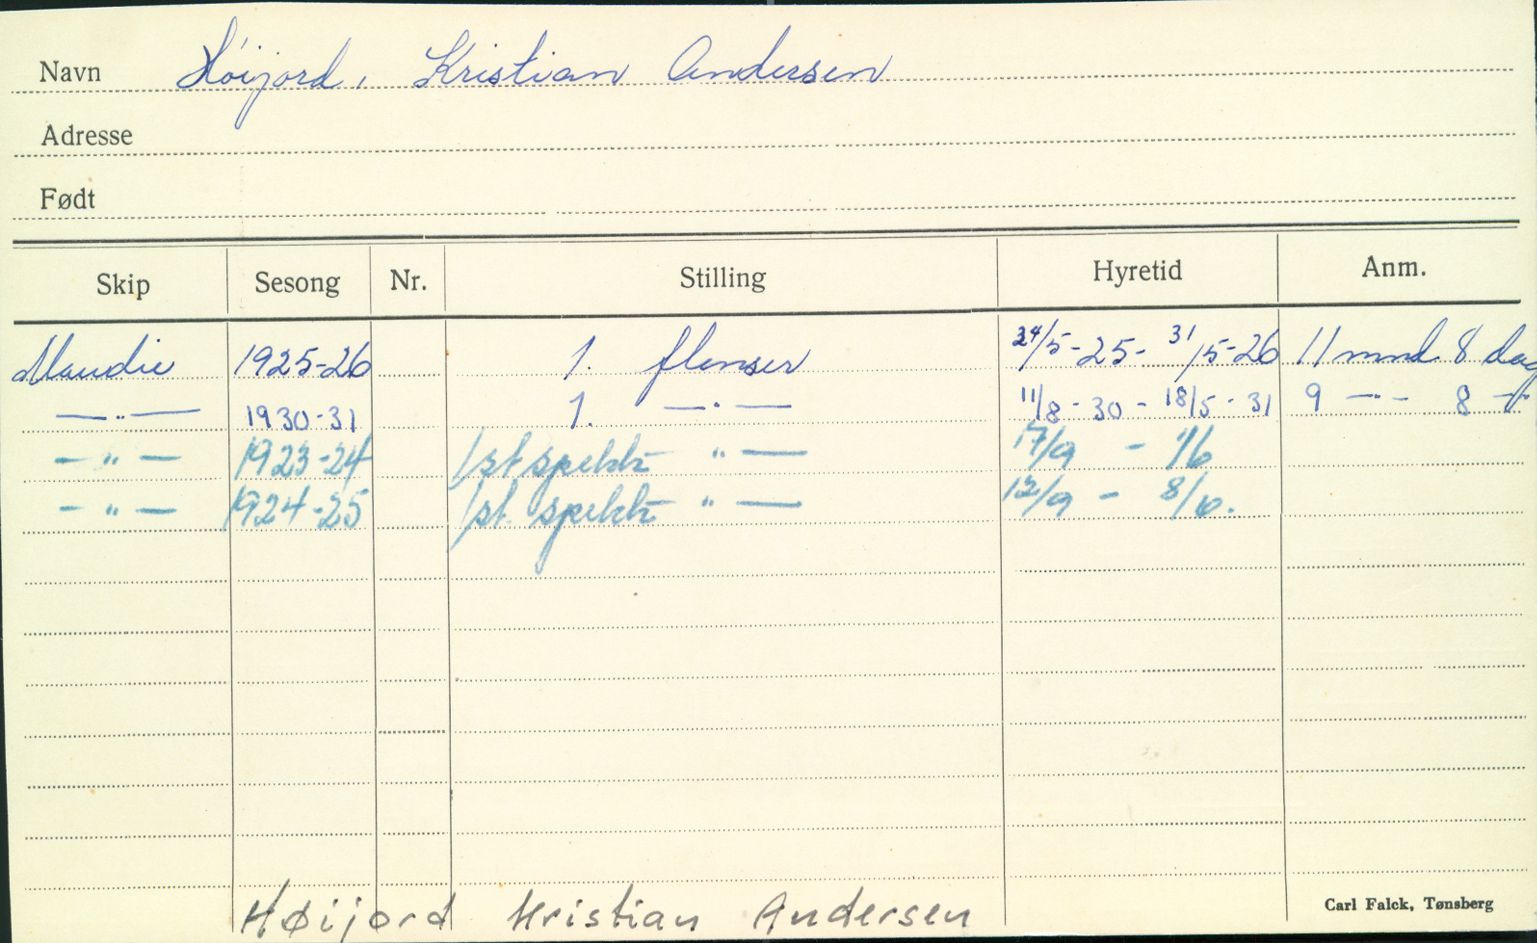 Navn Høijord, Kristian Andersen
Adresse
Født
Skip Sesong Nr. Stilling Hyretid Anm.
Maudie 1925-26 1. flenser 24/5-25- 31/5-26 11 mnd 8 dag
—„— 1930-31 1. —„— 11/8-30 - 18/5-31 9 —„— 8 —„—
—„— 1923-24 1st spekk- „— 17/9 - 1/6
—„— 1924-25 1st. spekk- „— 12/9 - 8/6.
Høijord Kristian Andersen
Carl Falck, Tønsberg